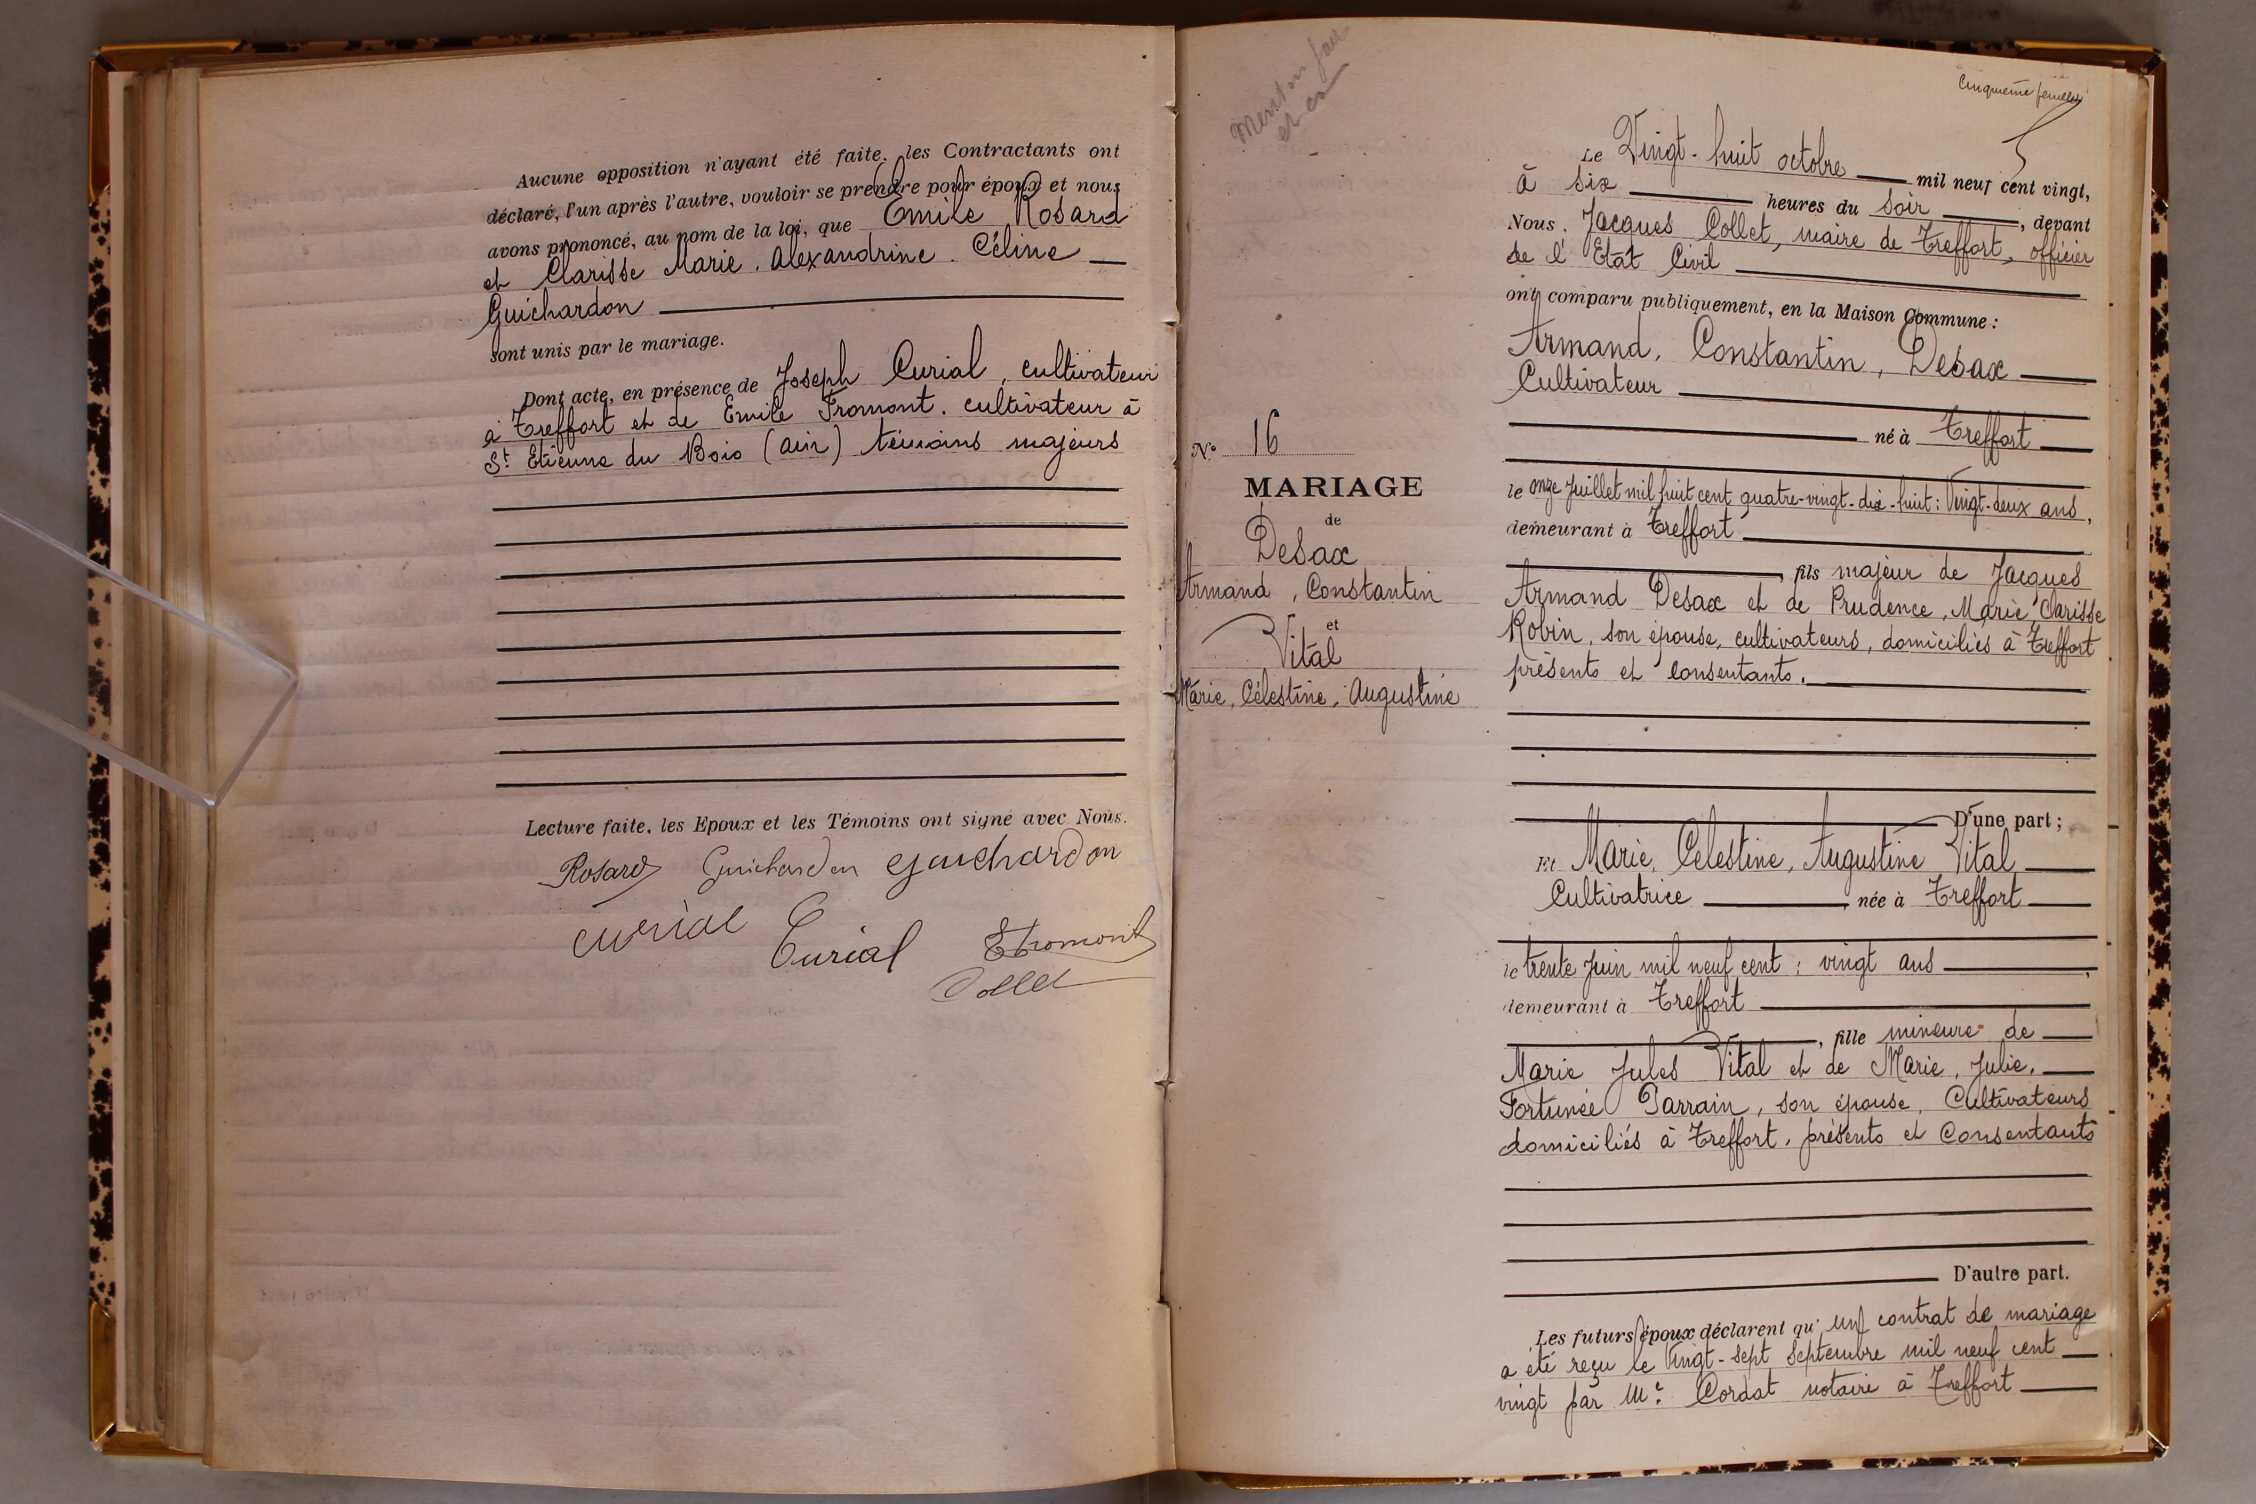 Aucune opposition n'ayant été faite, les Contractants ont
déclaré, l'un après l'autre, vouloir se prendre pour époux et nous
avons prononcé, au nom de la loi, que Emile Rosard
et Clarisse Marie. Alexandrine. Céline
Guichardon
sont unis par le mariage.
Dont acte, en présence de Joseph Curial, cultivateur
à Treffort et de Emile Fromont. cultivateur à
St Etienne du Bois (ain) témoins majeurs
Lecture faite, les Epoux et les Témoins ont signé avec Nous.
Rosard Guichardon Guichardon
Curial Curial EFromont
Collet
Cinquième feuillet
5
Le Vingt-huit octobre mil neuf cent vingt,
à six heures du soir, devant
Nous. Jacques Collet, maire de Treffort, officier
de l'Etat Civil
ont comparu publiquement, en la Maison Commune :
Armand, Constantin, Desax
Cultivateur
né à Treffort
le onze juillet mil huit cent quatre-vingt-dix-huit : Vingt-deux ans,
demeurant à Treffort
, fils majeur de Jacques
Armand Desax et de Prudence, Marie, Clarisse
Robin, son épouse, cultivateurs, domiciliés à Treffort
présents et consentants.
D'une part ;
Nº 16
MARIAGE
de
Desax
Armand, Constantin
et
Vital
Marie, Célestine, Augustine
Et Marie, Célestine, Augustine Vital
Cultivatrice, née à Treffort
le trente juin mil neuf cent ; vingt ans,
demeurant à Treffort
, fille mineure de
Marie Jules Vital et de Marie, Julie,
Fortunée Parrain, son épouse, Cultivateurs
domiciliés à Treffort, présents et Consentants
D'autre part.
Les futurs époux déclarent qu'un contrat de mariage
a été reçu le Vingt-sept Septembre mil neuf cent
vingt par Me. Cordat notaire à Treffort